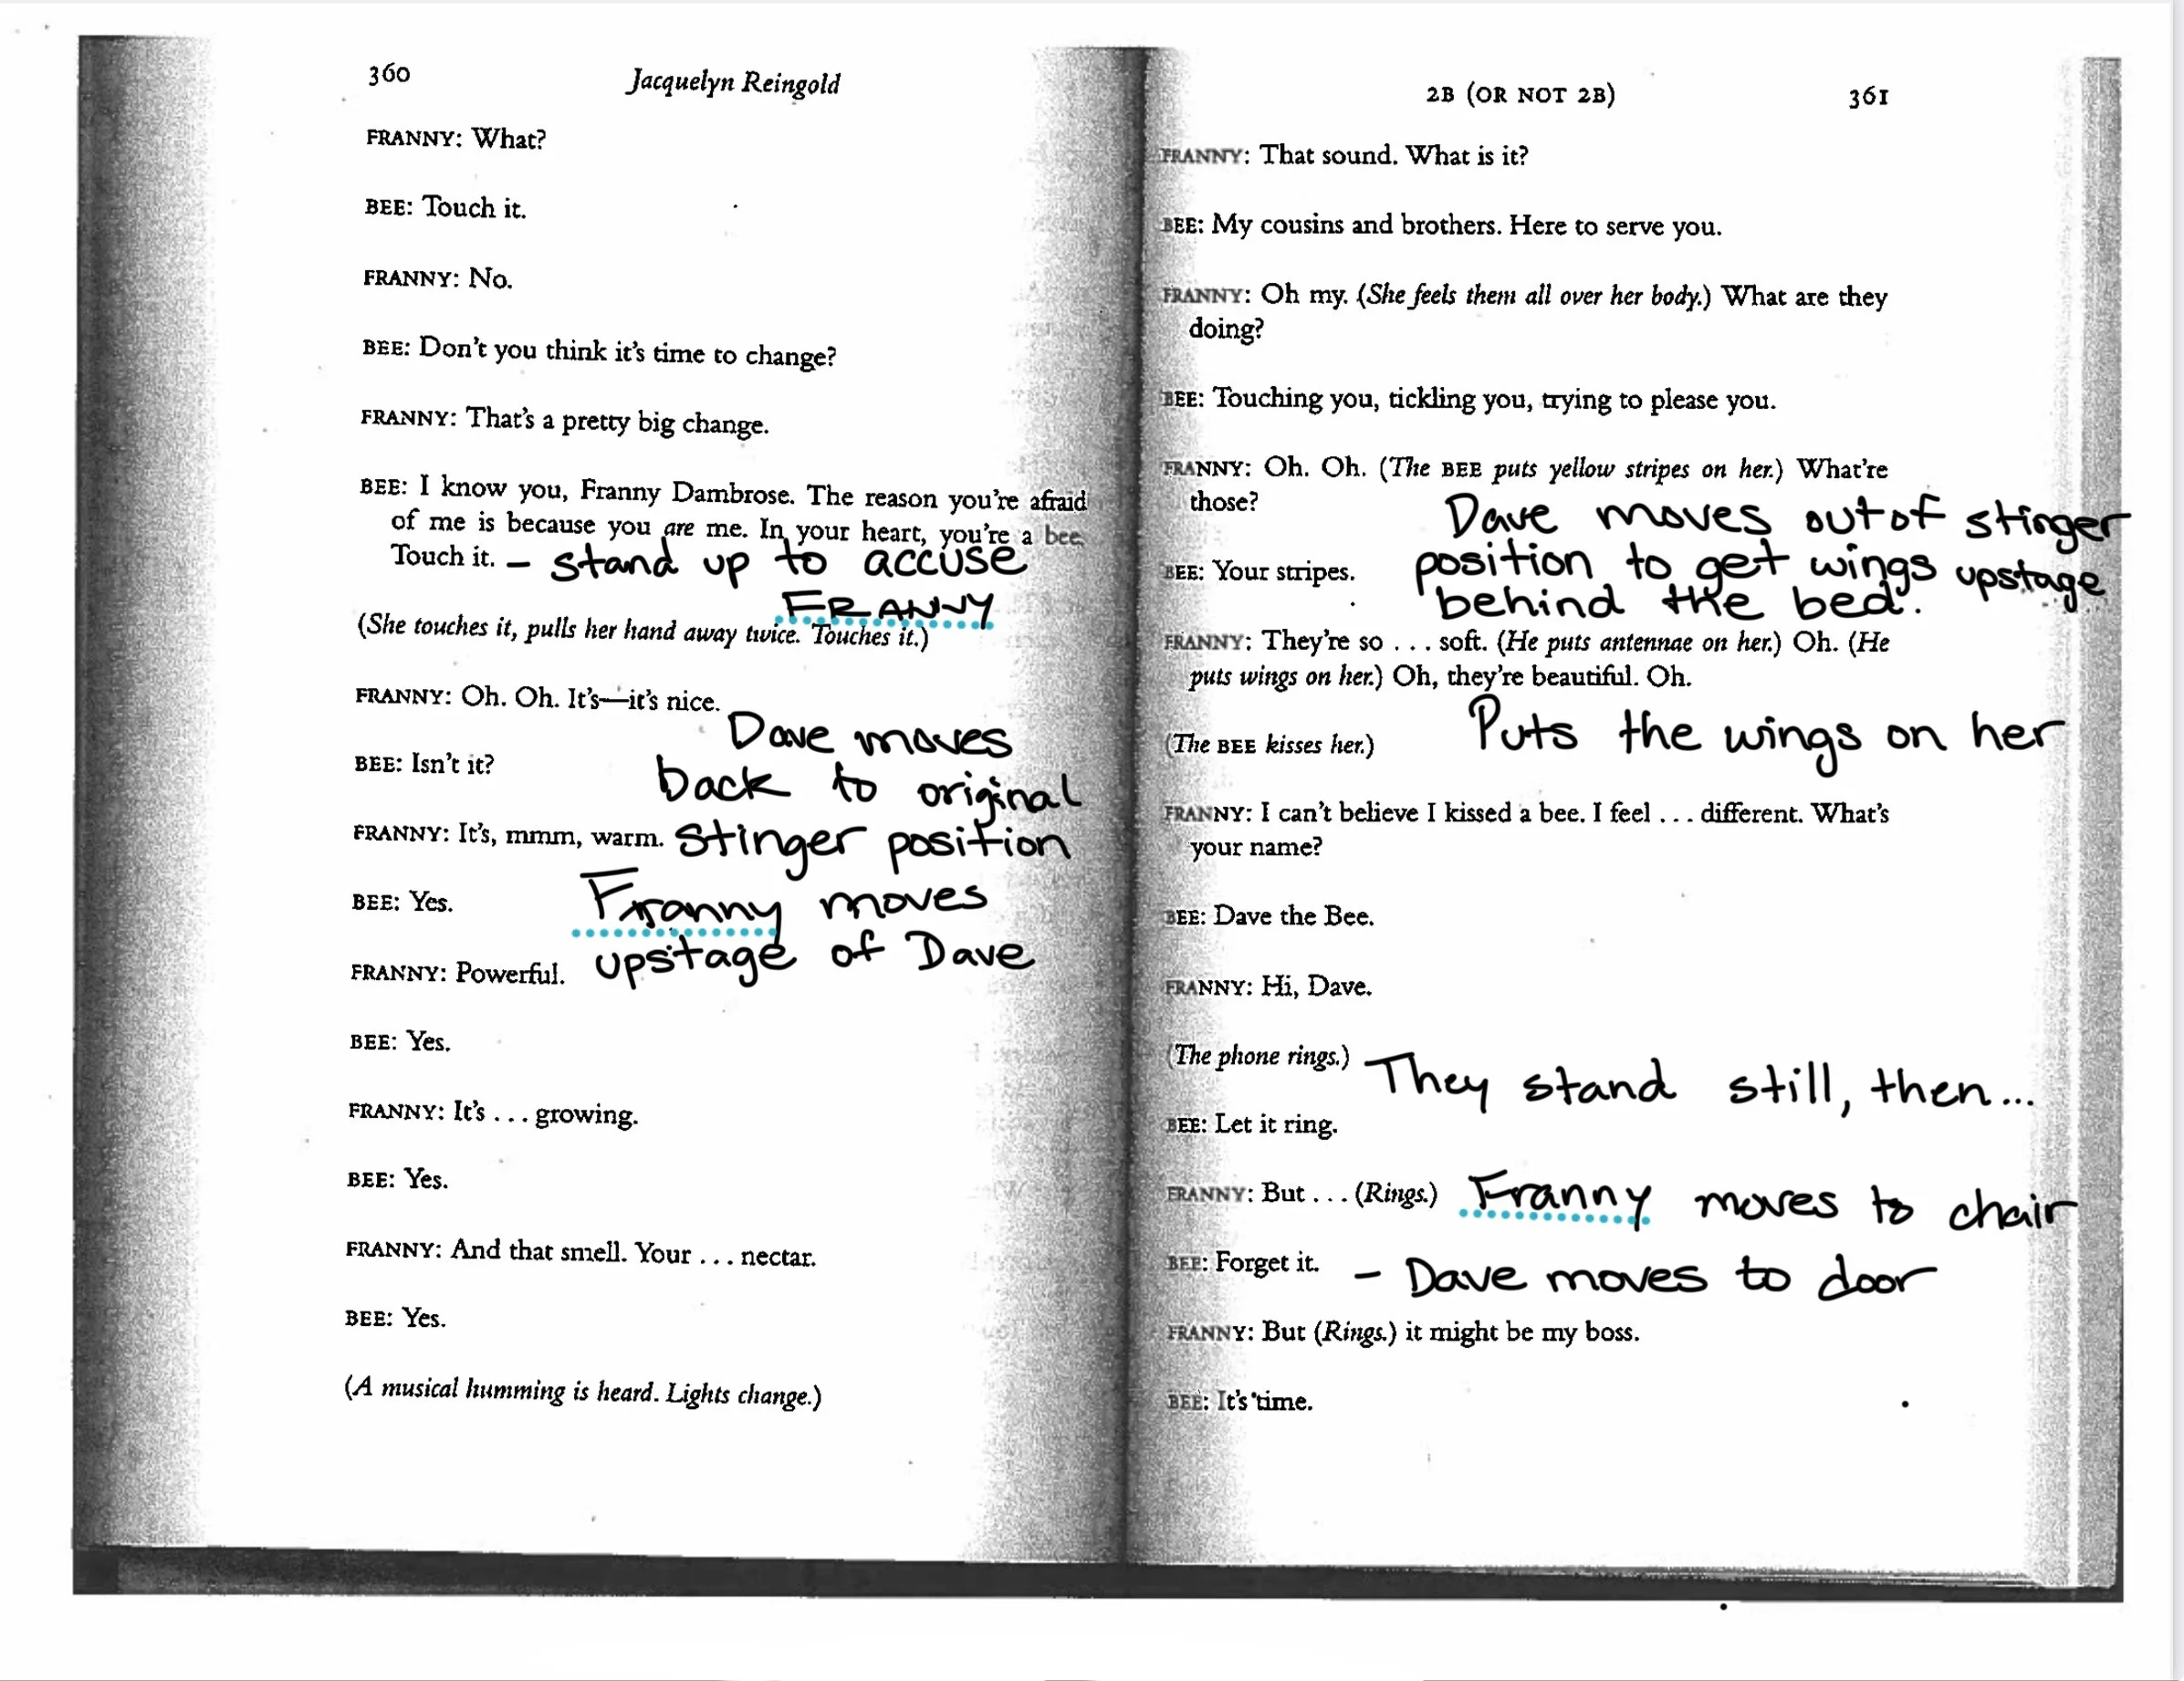 360
Jacquelyn Reingold
FRANNY: What?
BEE: Touch it.
FRANNY: No.
BEE: Don't you think it's time to change?
FRANNY: That's a pretty big change.
BEE: I know you, Franny Dambrose. The reason you're afraid
of me is because you are me. In your heart, you're a bee.
Touch it. – stand up to accuse
FRANNY
(She touches it, pulls her hand away twice. Touches it.)
FRANNY: Oh. Oh. It's—it's nice.
Dave moves
BEE: Isn't it?
back to original
FRANNY: It's, mmm, warm. stinger position
BEE: Yes. Franny moves
FRANNY: Powerful. upstage of Dave
BEE: Yes.
FRANNY: It's . . . growing.
BEE: Yes.
FRANNY: And that smell. Your . . . nectar.
BEE: Yes.
(A musical humming is heard. Lights change.)
2B (OR NOT 2B)
361
FRANNY: That sound. What is it?
BEE: My cousins and brothers. Here to serve you.
FRANNY: Oh my. (She feels them all over her body.) What are they
doing?
BEE: Touching you, tickling you, trying to please you.
FRANNY: Oh. Oh. (The BEE puts yellow stripes on her.) What're
those?
Dave moves out of stinger
BEE: Your stripes. position to get wings upstage
behind the bed.
FRANNY: They're so . . . soft. (He puts antennae on her.) Oh. (He
puts wings on her.) Oh, they're beautiful. Oh.
(The BEE kisses her.) Puts the wings on her
FRANNY: I can't believe I kissed a bee. I feel . . . different. What's
your name?
BEE: Dave the Bee.
FRANNY: Hi, Dave.
(The phone rings.) They stand still, then...
BEE: Let it ring.
FRANNY: But . . . (Rings.) Franny moves to chair
BEE: Forget it. – Dave moves to door
FRANNY: But (Rings.) it might be my boss.
BEE: It's time.